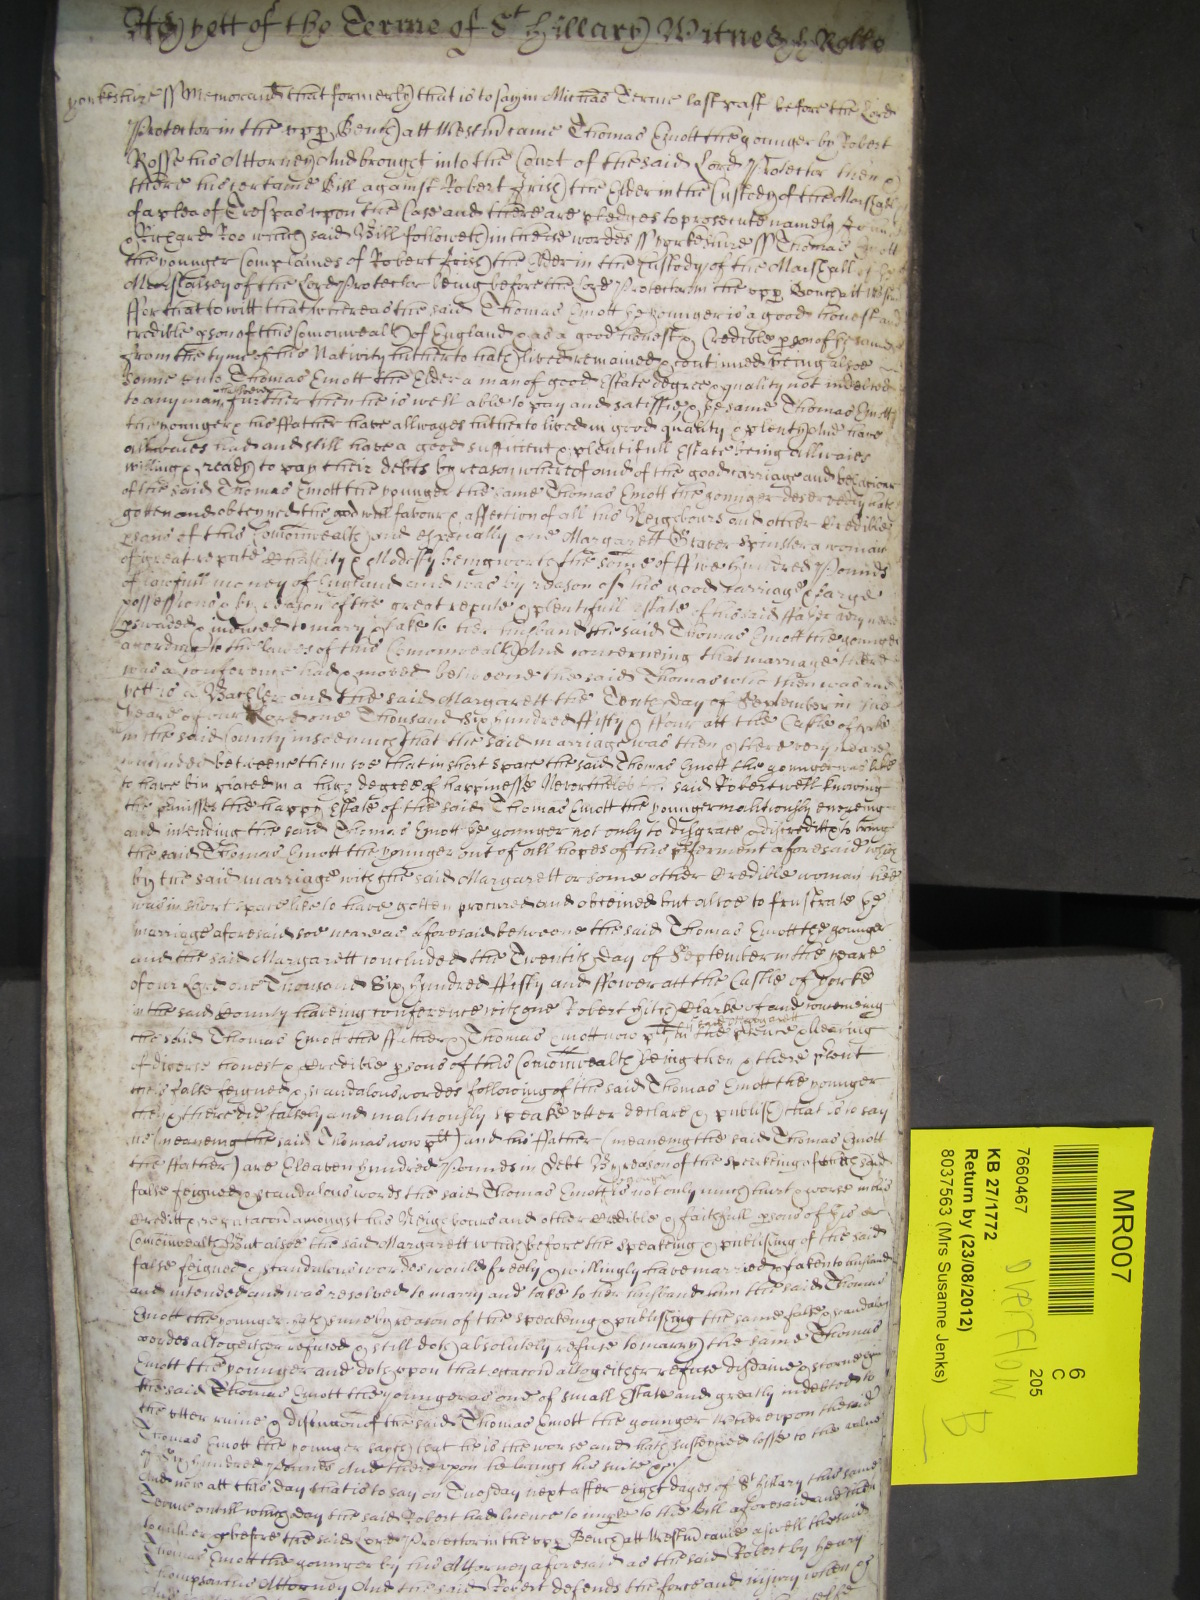 As yett of the Terme of St Hillary Witnes H Rolle
Yorkeshire ss Memorand that formerly that is to say in Michas Terme last past before the Lord
Protector in the upp Bench att Westm came Thomas Emott the younger by Robert
Rosse his Attorney And brought into the Court of the said Lord Protector then &
there his certaine Bill against Robert Frish the Elder in the Custody of the Marshall
of a plea of Trespas upon the Case and there are pledges to prosecute namely John
& Richard Roo which said Bill followeth in these wordes ss Yorkeshire ss Thomas Emott
the younger Complaines of Robert Frish the Elder in the Custody of the Marshall of the
Marshalsey of the Lord Protector being before the Lord Protector in the upp Bench att
ffor that to witt that whereas the said Thomas Emott the younger is a good honest and
credible pson of this Comonwealth of England & as a good honest & Credible pson
from the tyme of his Nativity hitherto hath lived remained & continued being alsoe
sonne unto Thomas Emott the Elder a man of good Estate degree & quality not indebted
to any man further then he is well able to pay and satisfie & the same Thomas Emott
the younger & his ffather have allwayes hitherto lived in good quality & plenty And have
allwaies had and still have a good sufficient & plentifull Estate being allwaies
willing & ready to pay their debts by reason whereof and of the good carriage and behaviour
of the said Thomas Emott the younger the same Thomas Emott the younger deservedly hath
gotten and obteyned the good will favour & affection of all his Neighbours and other Credible
psons of this Comonwealth and especially one Margarett Graver Spinster a woman
of great repute & Modesty being worth the some of ffive hundred Pounds
of lawfull money of England and was by reason of his good carriage & large
possessions & by reason of the great repute & plentifull estate of his said ffather very neere
pswaded & induced to mary & take to her husband the said Thomas Emott the younger
according to the lawes of this Comonwealth And concerneing that marriage there
was a conference had & moved betweene the said Thomas who then was and
yett is a Bachler and the said Margarett the Tenth day of September in the
yeare of our Lord one Thousand Six hundred ffifty & ffower att the Castle of Yorke
in the said County insoemuch that the said marriage was then & there very neare
concluded betweene them soe that in short space the said Thomas Emott the younger was like
to have bin placed in a high degree of happinesse Neverthelesse the said Robert well knowing
the pmisses the happy Estate of the said Thomas Emott the younger malitiously envyeing
and intending the said Thomas Emott the younger not only to disgrace & discreditt & to bring
the said Thomas Emott the younger out of all hopes of his pferment aforesaid which
by the said marriage with the said Margarett or some other Credible woman hee
was in short space like to have gotten procured and obteined but alsoe to frustrate the
marriage aforesaid soe neare as aforesaid betweene the said Thomas Emott the younger
and the said Margarett concluded the Twentith day of September in the yeare
of our Lord one Thousand Six hundred ffifty and ffower att the Castle of Yorke
in the said County haveing conference with one Robert Hitch Clarke of and concerneing
the said Thomas Emott the ffather & Thomas Emott now plt in the psence & hearing
of the said Margarett
of diverse honest & credible psons of this Comonwealth being then & there psent
theis false feigned & scandalous wordes following of the said Thomas Emott the younger
then & there did falsely and malitiously speake utter declare & publish that is to say
he (meaneing the said Thomas now plt) and his ffather (meaneing the said Thomas Emott
the ffather) are Eleaven hundred Pounds in debt By reason of the speakeing of which said
false feigned & scandalous words the said Thomas Emott is not only much hurt & worse in his
younger
creditt & reputacon amongst his Neighbours and other credible & faithfull psons of this
Comonwealth But alsoe the said Margarett which before the speaking & publishing of the said
false feigned & scandalous wordes would freely & willingly have married & taken to husband
and intended and was resolved to marry and take to her husband him the said Thomas
Emott the younger hath since by reason of the speaking & publishing the same false & scandalous
wordes altogeither refused & still doth absolutely refuse to marry the same Thomas
Emott the younger and doth upon that occacon altogeither refuse disdaine & scorne
the said Thomas Emott the younger as one of small Estate and greatly indebted to
the utter ruine & of the said Thomas Emott the younger Whereupon the said
Thomas Emott the younger saith that he is the worse and hath susteyned losse to the value
of Six hundred Pounds And thereupon he brings his suite &c
And now att this day that is to say on Tuesday next after eight dayes of St Hillary this same
Terme untill which day the said Robert had licence to imple to the Bill aforesaid and then
to answer &c before the said Lord Protector in the upp Bench att Westm came aswell the said
Thomas Emott the younger by his Attorney aforesaid as the said Robert by Henry
Thompson his Attorney And the said Robert defends the force and injury when &c
MR007
6
C
205
7660467
KB 27/1772
Return by (23/08/2012)
8037563 (Mrs Susanne Jenks)